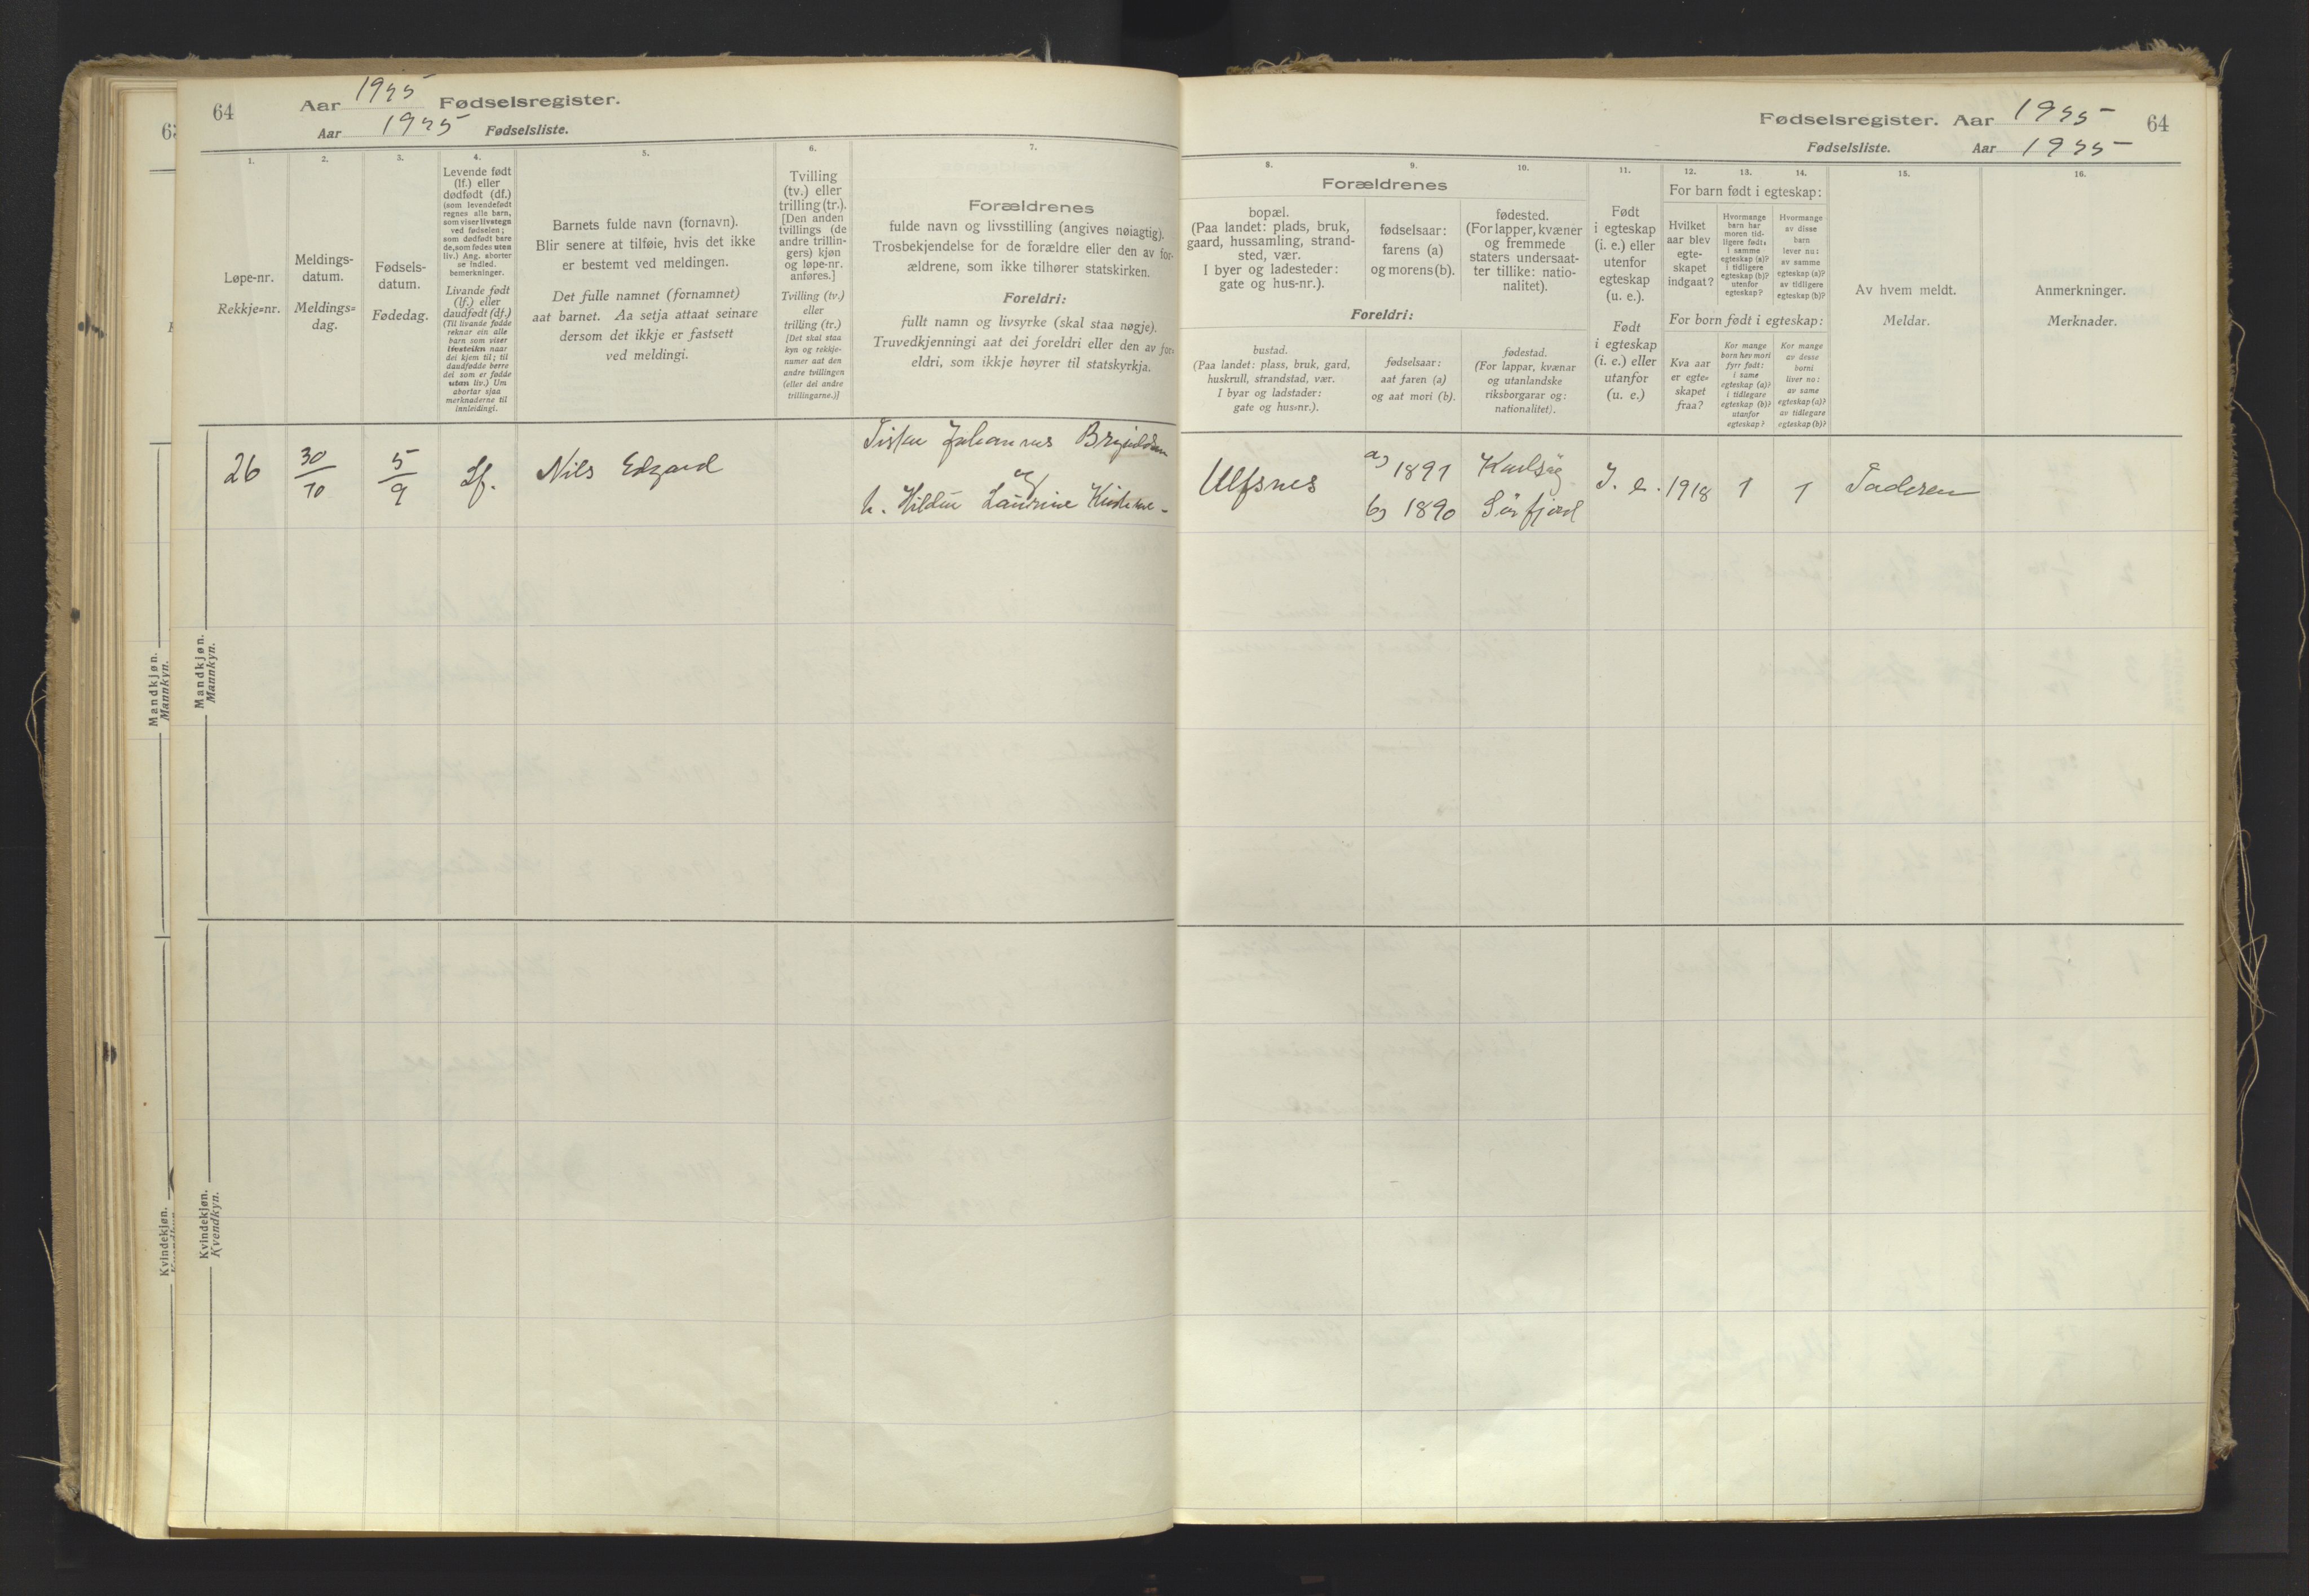 64
Aar 1925 Fødselsregister.
Aar 1925 Fødselsliste.
1.
2.
3.
4.
5.
6.
7.
Løpe-nr.
Rekkje-nr.
Meldings-
datum.
Meldings-
dag.
Fødsels-
datum.
Fødedag.
Levende født
(lf.) eller
dødfødt (df.)
(som levendefødt
regnes alle barn,
som viser livstegn
ved fødselen;
som dødfødt bare
de, som fødes uten
liv.) Ang. aborter
se indled.
bemerkninger.
Livande født
(lf.) eller
daudfødt (df.)
(Til livande fødde
reknar ein alle
barn som viser
livsteikn naar
dei kjem til; til
daudfødde berre
dei som er fødde
utan liv.) Um
abortar sjaa
merknaderne til
innleidingi.
Barnets fulde navn (fornavn).
Blir senere at tilføie, hvis det ikke
er bestemt ved meldingen.
Det fulle namnet (fornamnet)
aat barnet. Aa setja attaat seinare
dersom det ikkje er fastsett
ved meldingi.
Tvilling
(tv.) eller
trilling (tr.).
[Den anden
tvillings (de
andre trillin-
gers) kjøn
og løpe-nr.
anføres.]
Tvilling (tv.)
eller
trilling (tr.)
[Det skal staa
kyn og rekkje-
numer aat den
andre tvillingen
(eller dei andre
trillingarne.)]
Forældrenes
fulde navn og livsstilling (angives nøiagtig).
Trosbekjendelse for de forældre eller den av for-
ældrene, som ikke tilhører statskirken.
Foreldri:
fullt namn og livsyrke (skal staa nøgje).
Truvedkjenningi aat dei foreldri eller den av for-
eldri, som ikkje høyrer til statskyrkja.
26
30/10
5/9
Lf.
Nils Edgard
Johannes
og
h. Laurine
Mandkjøn.
Mannkyn.
Kvindekjøn.
Kvendkyn.
Mandkjøn.
Mannkyn.
Kvindekjøn.
Fødselsregister. Aar 1925
64
Fødselsliste. Aar 1925
8.
9.
10.
11.
12.
13.
14.
15.
16.
Forældrenes
bopæl.
(Paa landet: plads, bruk,
gaard, hussamling, strand-
sted, vær.
I byer og ladesteder:
gate og hus-nr.).
fødselsaar:
farens (a)
og morens (b).
fødested.
(For lapper, kvæner
og fremmede
staters undersaat-
ter tillike: natio-
nalitet).
Foreldri:
bustad.
(Paa landet: plass, bruk, gard,
huskrull, strandstad, vær.
I byar og ladstader:
gate og hus-nr.).
fødselsaar:
aat faren (a)
og aat mori (b).
fødestad.
(For lappar, kvænar
og utanlandske
riksborgarar og:
nationalitet).
Født
i egteskap
(i. e.) eller
utenfor
egteskap
(u. e.).
Født
i egteskap
(i. e.) eller
utanfor
(u. e.)
For barn født i egteskap:
Hvilket
aar blev
egte-
skapet
indgaat?
Hvormange
barn har
moren tid-
ligere født:
i samme
egteskap (a)?
i tidligere
egteskap (b)?
utenfor
egteskap?
Hvormange
av disse
barn
lever nu:
av samme
egteskap (a)?
av tidligere
egteskap (b)?
For born født i egteskap:
Kva aar
er egte-
skapet
fraa?
Kor mange
born hev mori
fyrr født:
i same
egteskap (a)?
i tidlegare
egteskap (b)?
utanfor
egteskap?
Kor mange
av desse
borni
liver no:
av same
egteskap (a)?
av tidlegare
egteskap (b)?
Av hvem meldt.
Meldar.
Anmerkninger.
Merknader.
Ulfsnes
a) 1891
b) 1890
Karlsøy
Sørfjord
I. e.
1918
1
1
Faderen